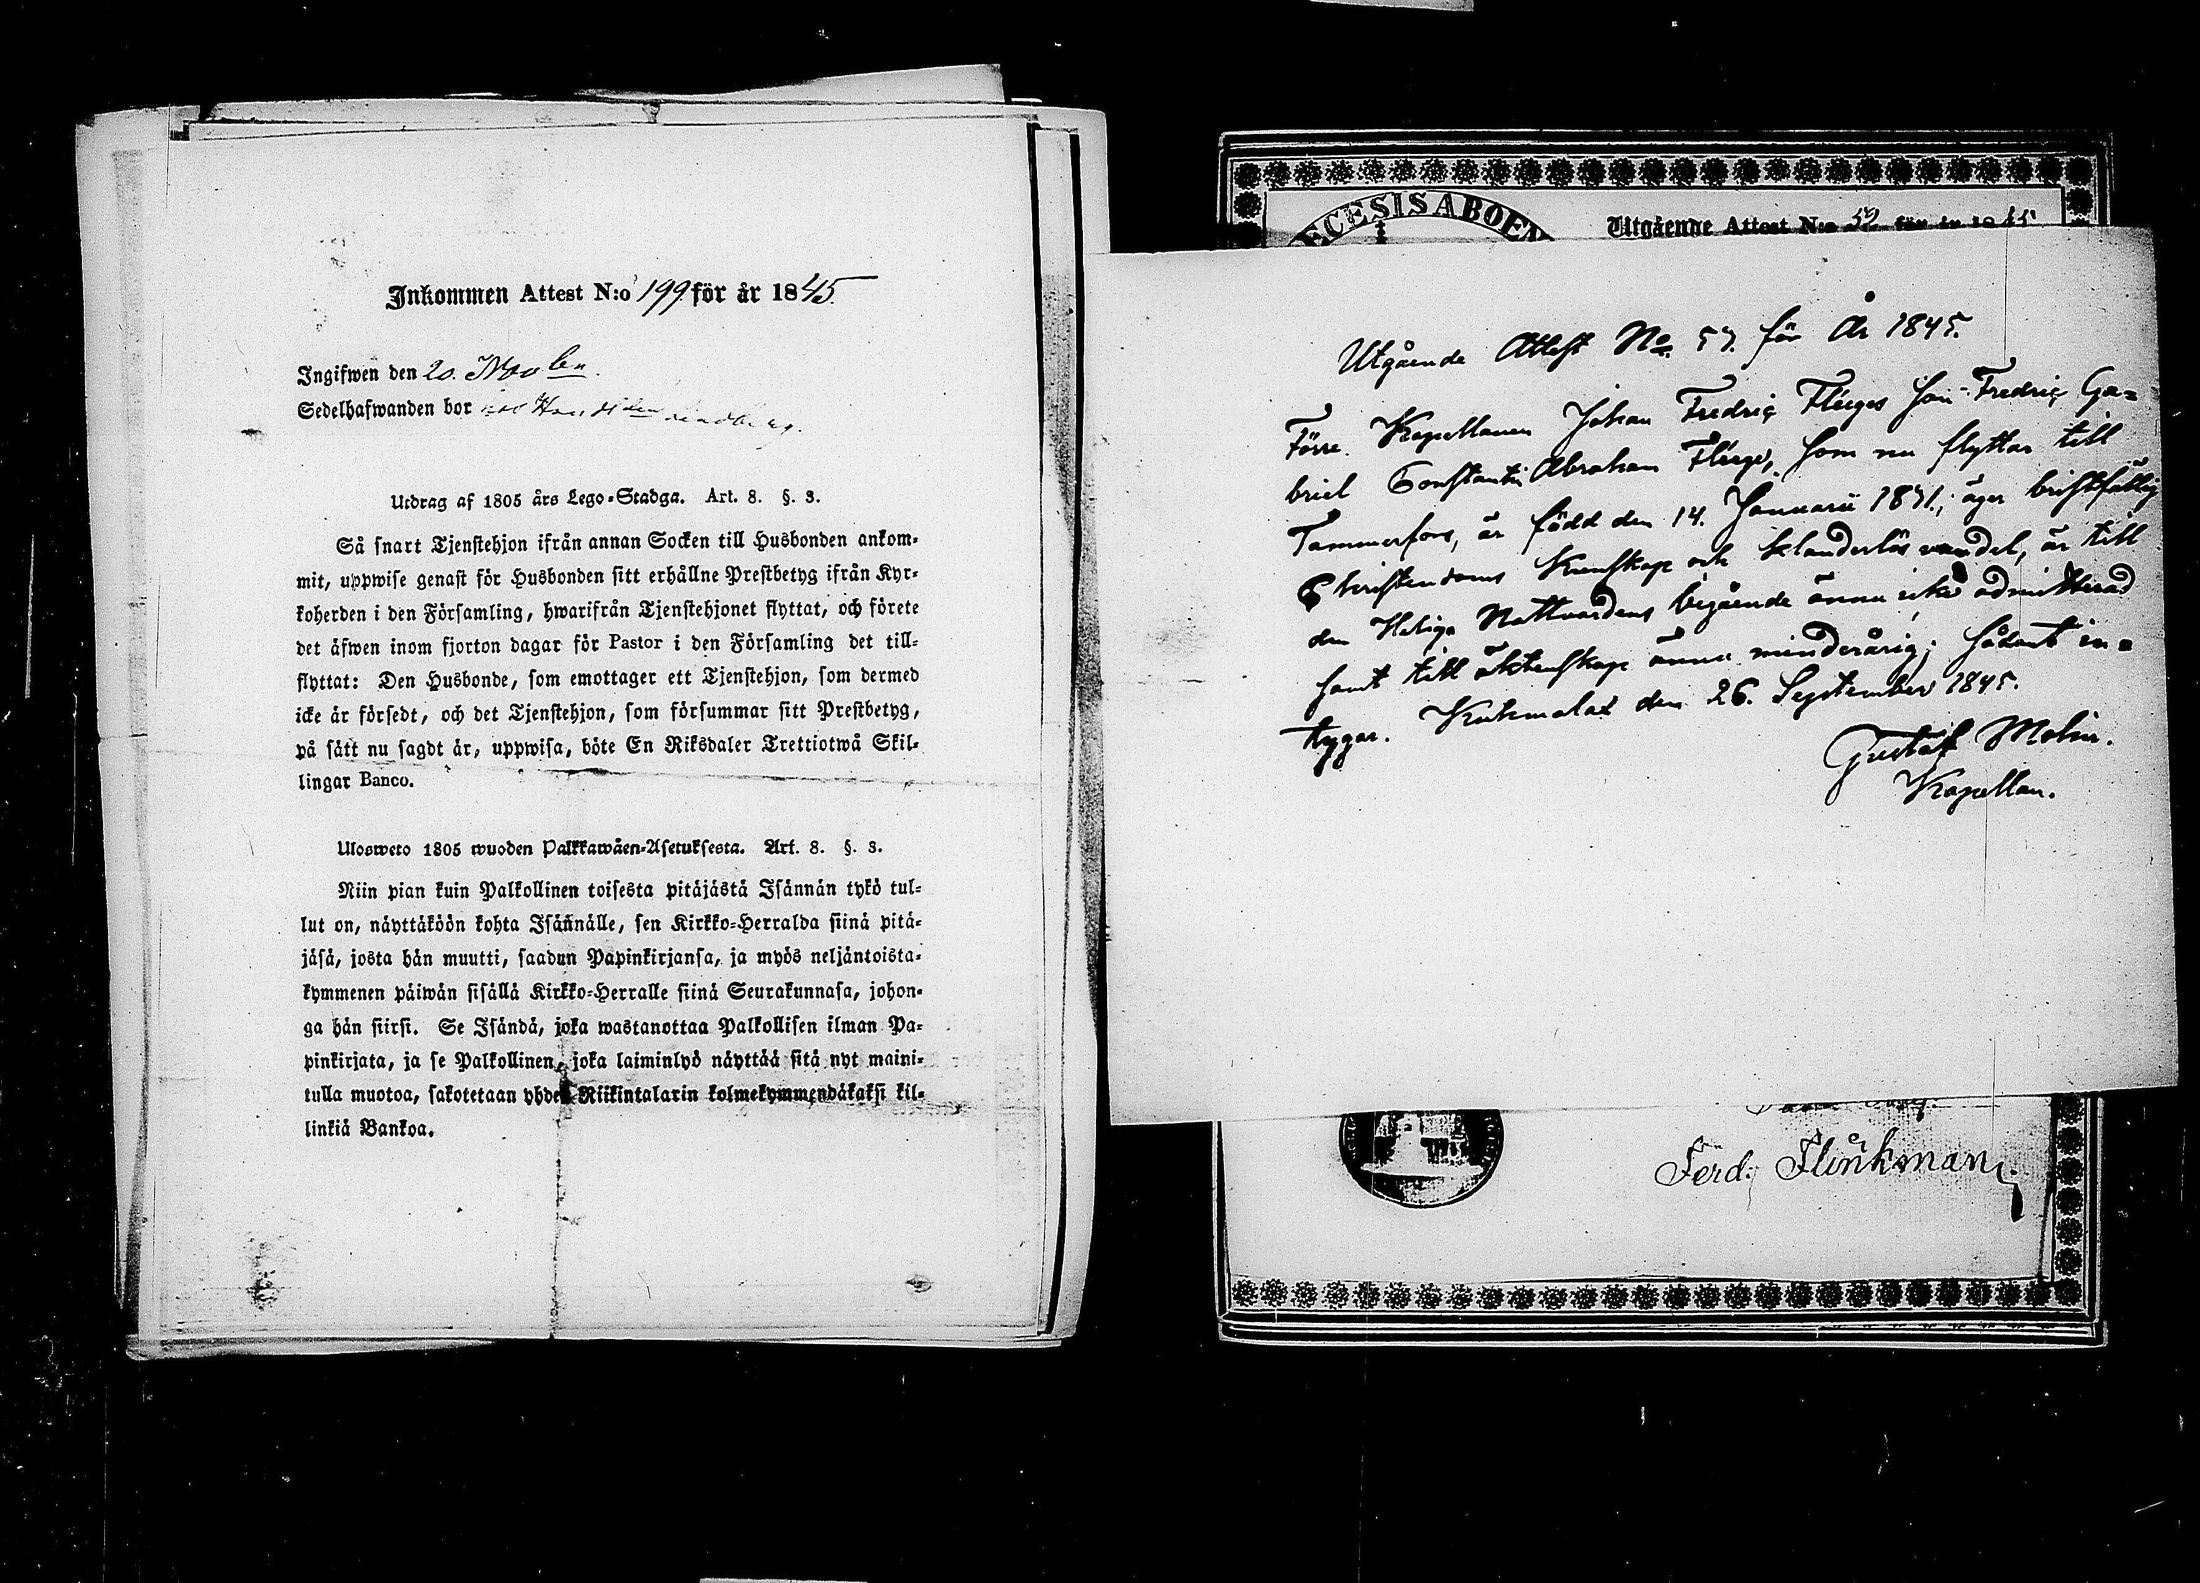 Inkommen Attest N:o 199 för år 1845.
Ingifwen den 20. Novben.
Sedelhafwanden bor hos Handlden Lindberg.
Utdrag af 1805 års Lego-Stadga. Art. 8. §. 3.
Så snart Tjenstehjon ifrån annan Socken till Husbonden ankom-
mit, uppwise genast för Husbonden sitt erhållne Prestbetyg ifrån Kyr-
koherden i den Församling, hwarifrån Tjenstehjonet flyttat, och förete
det äfwen inom fjorton dagar för Pastor i den Församling det till-
flyttat: Den Husbonde, som emottager ett Tjenstehjon, som dermed
icke är försedt, och det Tjenstehjon, som försummar sitt Prestbetyg,
på sätt nu sagdt är, uppwisa, böte En Riksdaler Trettiotwå Skil-
lingar Banco.
Ulosweto 1805 wuoden Palkkawäen-Asetuksesta. Art. 8. §. 3.
Niin pian kuin Palkollinen toisesta pitäjästä Isännän tykö tul-
lut on, näyttäköön kohta Isännälle, sen Kirkko-Herralda siinä pitä-
jäsä, josta hän muutti, saadun Papinkirjansa, ja myös neljäntoista-
kymmenen päiwän sisällä Kirkko-Herralle siinä Seurakunnasa, johon-
ga hän siirsi. Se Isändä, joka wastanottaa Palkollisen ilman Pa-
pinkirjata, ja se Palkollinen, joka laiminlyö näyttää sitä nyt maini-
tulla muotoa, sakotetaan yhden Riikintalarin kolmekymmendäkaksi kil-
linkiä Bankoa.
ECESIS ABOEN
Utgående Attest N:o 59 för år 1845
Utgående Attest No. 57. för År 1845.
Förre Kapellanen Johan Fredric Fleeges Son Fredric Ga=
briel Constantin Abraham Fleege, som nu flyttar till
Tammerfors, är född den 14. Januarii 1831., äger bristfällig
Christendoms Kunskap och klanderlös vandel, är till
den Heliga Nattvardens begående ännu icke admitterad
samt till äktenskap ännu minderårig; sådant in=
tygar. Kuhmalax den 26. September 1845.
Gustaf Molin.
Kapellan.
Ferd. Flinkman